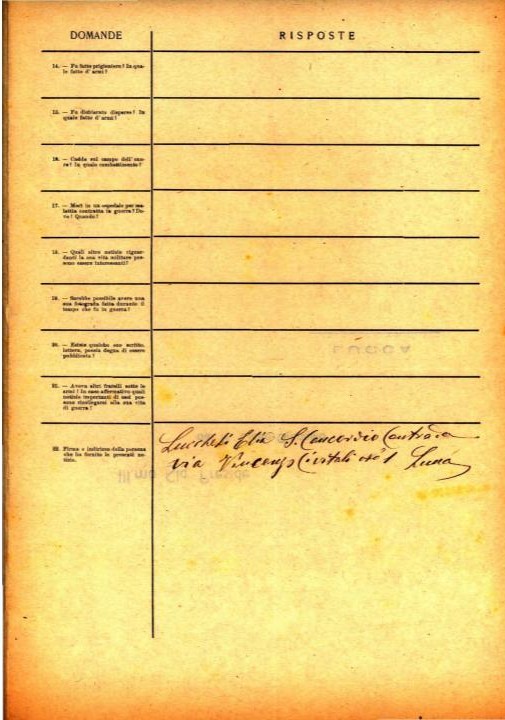 DOMANDE
RISPOSTE
14. — Fu fatto prigioniero? In qua-
le fatto d'armi?
15. — Fu dichiarato disperso? In
quale fatto d'armi?
16. — Cadde sul campo dell'ono-
re? In quale combattimento?
17. — Morì in un ospedale per ma-
lattia contratta in guerra? Do-
ve? Quando?
18. — Quali altre notizie riguar-
danti la sua vita militare pos-
sono essere interessanti?
19. — Sarebbe possibile avere una
sua fotografia fatta durante il
tempo che fu in guerra?
20. — Esiste qualche suo scritto,
lettera, poesia degna di essere
pubblicata?
21. — Aveva altri fratelli sotto le
armi? In caso affermativo quali
notizie importanti di essi pos-
sono ricollegarsi alla sua vita
di guerra?
22. Firma e indirizzo della persona
che ha fornito le presenti no-
tizie.
Luccheti Elia S. Concordio Contrada
via Vincenzo Civitali
LUCCA
Ill.mo Sig. Preside